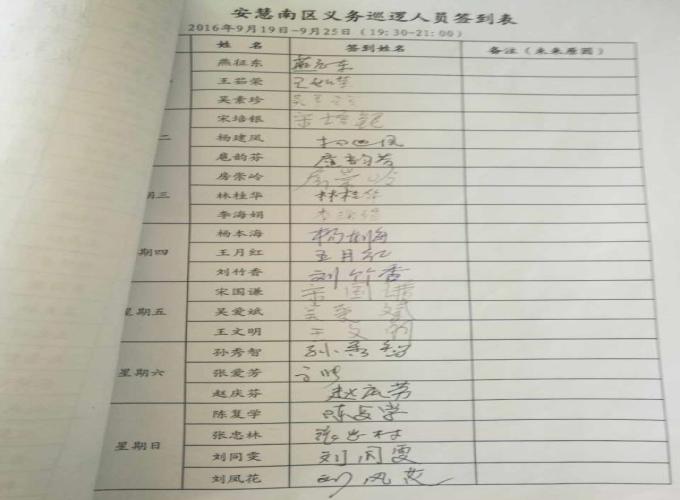 安慧南区义务巡逻人员签到表
2016年9月19日-9月25日(19:30-21:00)
姓 名 签到姓名 备注(未来原因)
燕征东 燕征东
王茹荣
吴素珍
宋培银 宋培銀
二 杨建凤
扈韵芬 扈韵芬
房崇岭 房崇岭
期三 林桂华 林桂华
李海娟
杨本海 杨本海
期四 王月红 王月红
刘竹香 刘竹香
宋国谦 宋国谦
星期五 吴爱斌 吴爱斌
王文明 王文明
孙秀智 孙秀智
星期六 张爱芳
赵庆芬 赵庆芬
陈复学 陈复学
星期日 张忠林
刘同雯 刘同雯
刘凤花 刘凤花